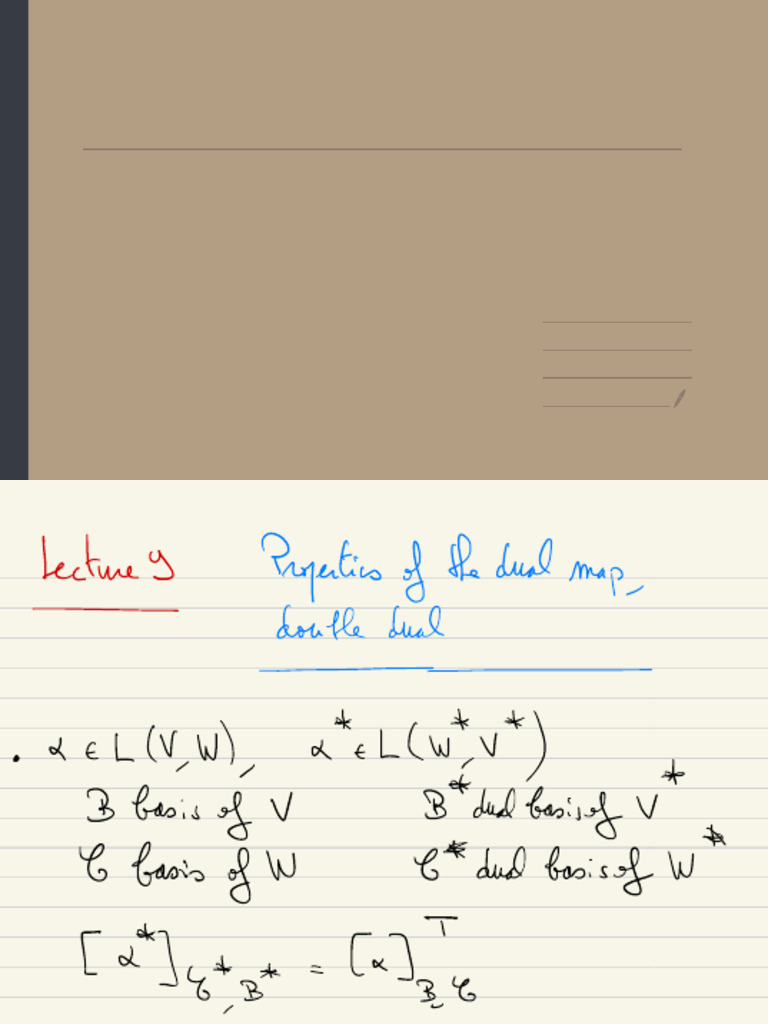 Lecture 9 Properties of the dual map,
double dual
. α ∈ L(V, W), α* ∈ L(W*, V*)
B basis of V B* dual basis of V*
C basis of W C* dual basis of W*
[α*]_{C*, B*} = [α]^T_{B, C}